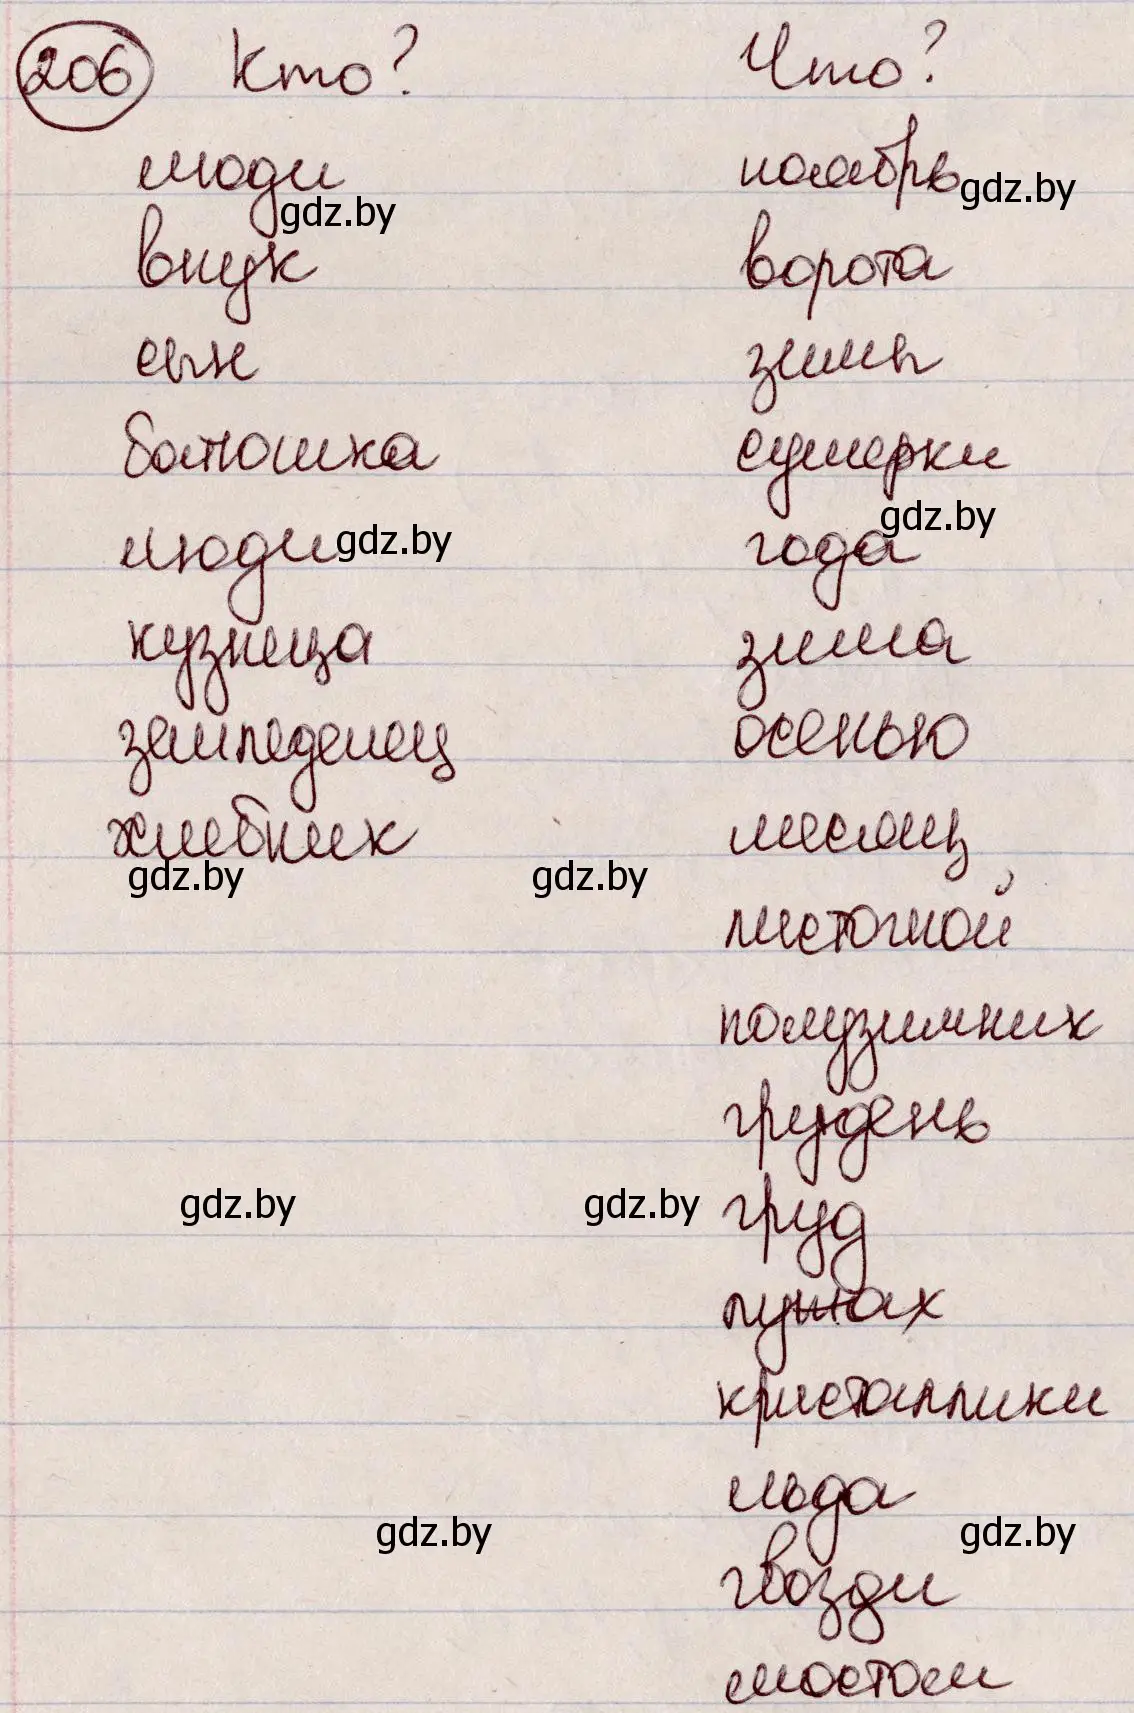 206 Кто? Что?
люди ноябрь
gdz.by gdz.by
внук ворота
сын зимы
батюшка сумерки
gdz.by
люди gdz.by года
кузница зима
земледелец осенью
хлебник месяц
gdz.by gdz.by
листогной
полузимник
грудень
gdz.by gdz.by груд
лужах
кристаллики
льда
gdz.by gdz.by
гвозди
мостом